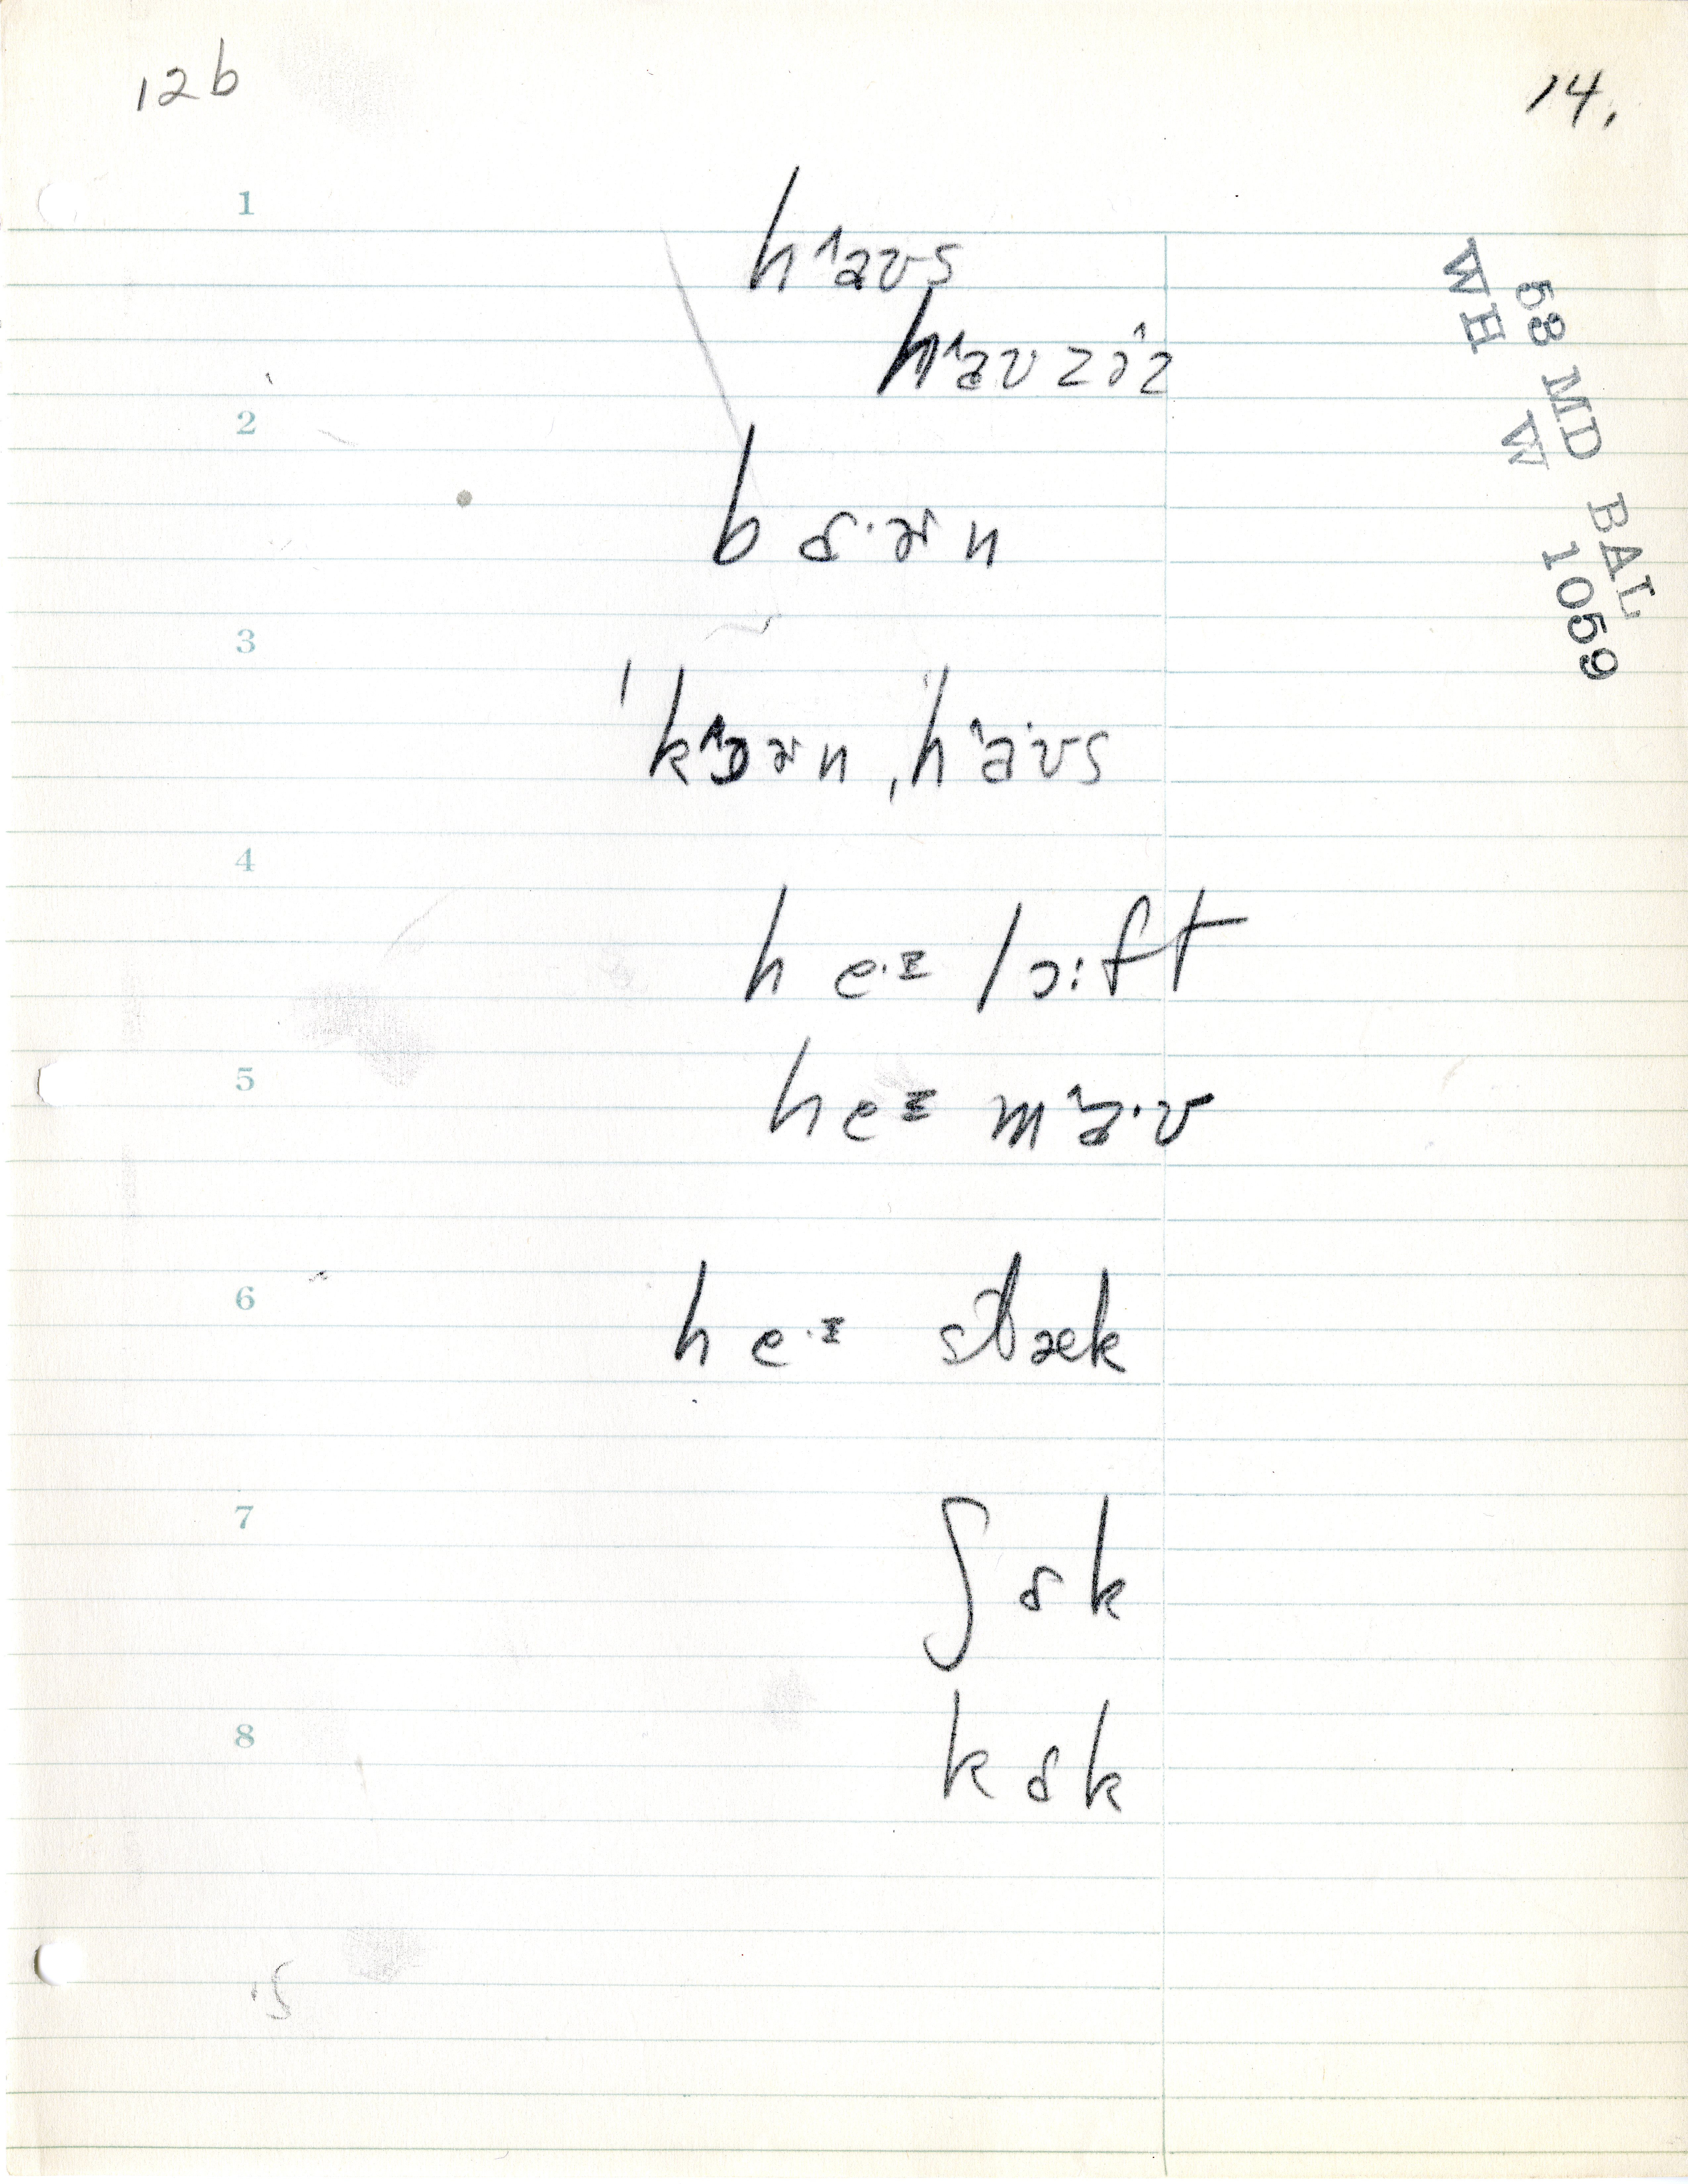 12b
14.
53 MD BAL
WH W 1059
1
h˄aʊs
h˄aʊzɨ˄z
2
bɒ·ɚn
3
ˈk˄ɔɚn ˌh˄aˑʊs
4
he·ɪ lɔ:ft
5
heɪ m˄a·ʊ
6
he·ɪ stæk
7
ʃɒk
8
kɒk